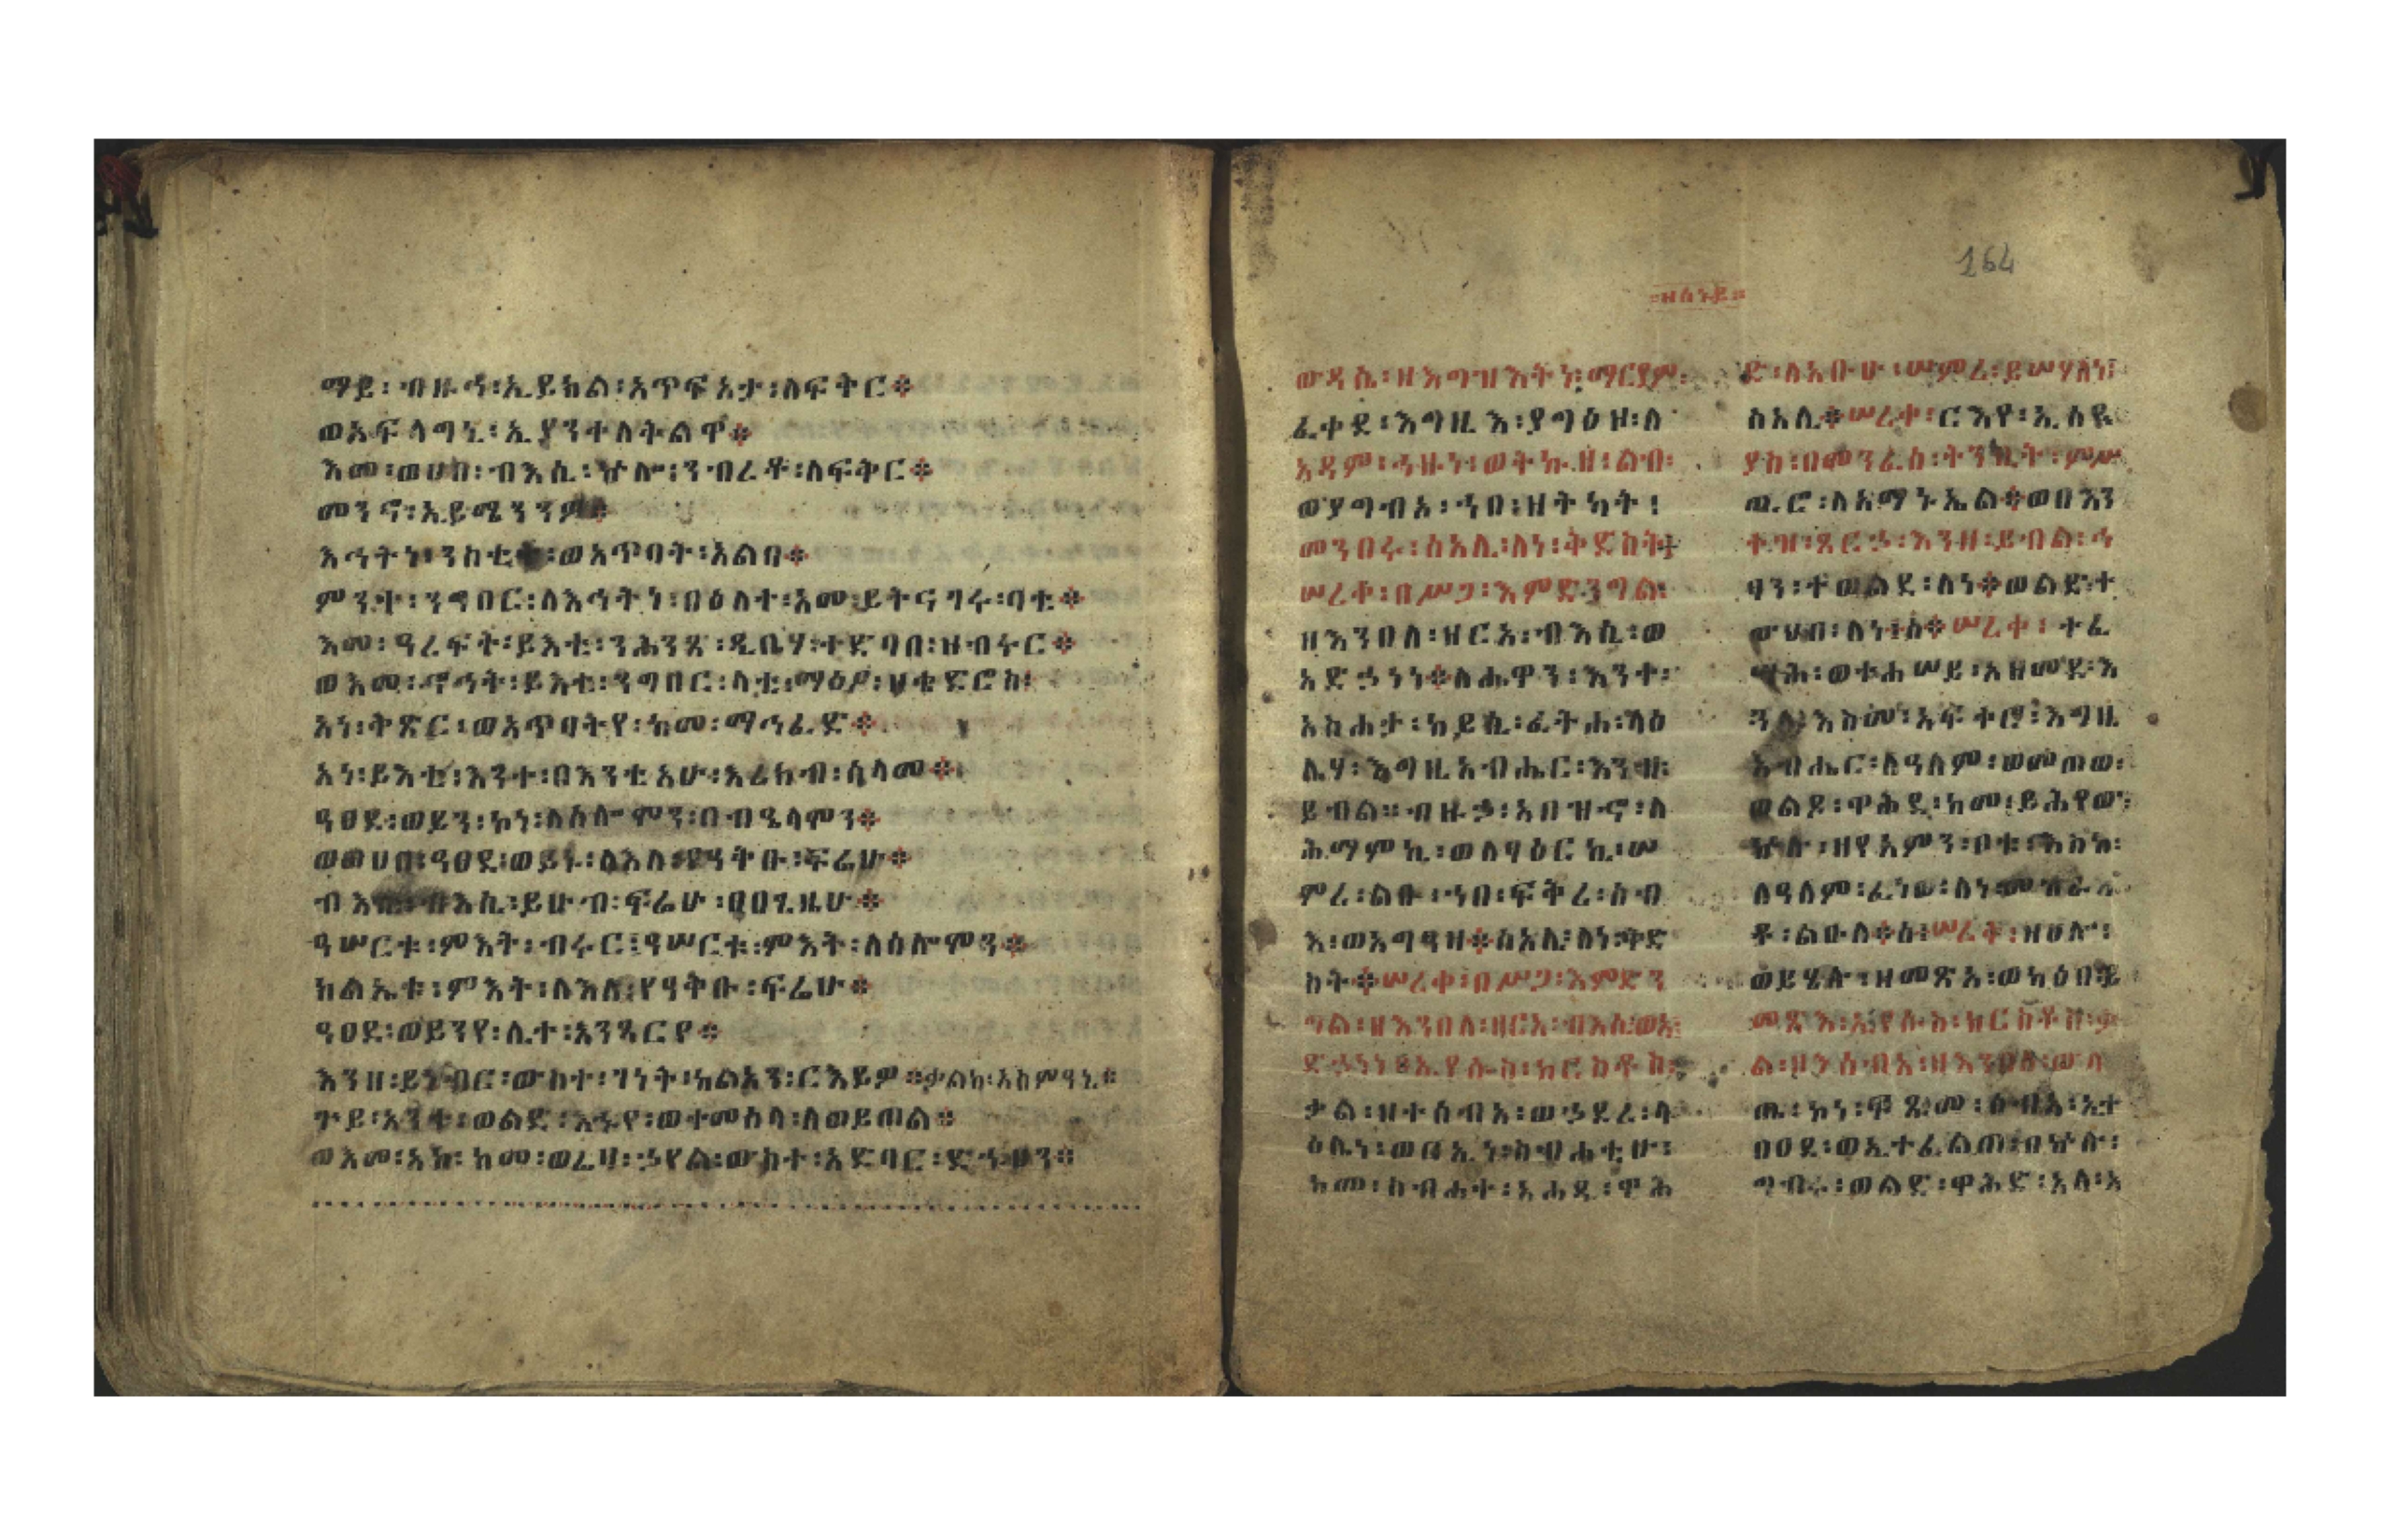 ማይ፡ብዙኅ፡ኢይክል፡አጥፍአታ፡ለፍትር።
ወአፍላግኒ፡ኢያንተለትልዋ።
እመ፡ወሀበ፡ብእሲ፡ኵሎ፡ንብረቶ፡ለፍቅር።
መንኖ፡አይሜንንዎ።
እኅትነ፡ንስቲት፡ወአጥባት፡አልባ።
ምንተ፡ንግበር፡ለእኅትነ፡በዕለተ፡አመ፡ይትናገሩ፡ባቲ።
እመ፡ዓረፍት፡ይእቲ፡ንሕንጽ፡ዲቤሃ፡ተድባበ፡ዘብሩር።
ወእመ፡ኆኅት፡ይእቲ፡ንግበር፡ላቲ፡ማዕዖ፡ዘቄድሮስ፡
አነ፡ቅጽር፡ወአጥባትየ፡ከመ፡ማኅፈድ።
አነ፡ይእቲ፡እንተ፡በእንቲአሁ፡እረክብ፡ሰላመ።
ዓፀደ፡ወይን፡ኮነ፡ለሰሎሞን፡በብዔላሞን።
ወወሀበ፡ዓፀደ፡ወይኑ፡ለእለ፡የዓትቡ፡ፍሬሁ።
ብእሲ፡ብእሲ፡ይሁብ፡ፍሬሁ፡በበጊዜሁ።
ዓሠርቱ፡ምእት፡ብሩር፡ዓሠርቱ፡ምእት፡ለሰሎሞን።
ክልኤቱ፡ምእት፡ለእለ፡የዓቅቡ፡ፍሬሁ።
ዓፀደ፡ወይንየ፡ሊተ፡አንጻርየ።
እንዘ፡ይነብር፡ውስተ፡ገነት፡ካልአን፡ርእይዎ።ቃልከ፡አስምዓኒ።
ጕይ፡አንተ፡ወልድ፡እኁየ፡ወተመሰላ፡ለወይጠል።
ወእመ፡አኮ፡ከመ፡ወሬዛ፡ኃየል፡ውስተ፡አድባር፡ድኁኃን።
164
።ዘሰኑይ።
ውዳሴ፡ዘእግዝእትነ፡ማርያም፡
ፈቀደ፡እግዚእ፡ያግዕዞ፡ለ
አዳም፡ኅዙነ፡ወትኩዘ፡ልብ፡
ወያግብኦ፡ኀበ፡ዘትካት፡
መንበሩ፡ሰአሊ፡ለነ፡ቅድስት
ሠረቀ፡በሥጋ፡እምድንግል፡
ዘእንበለ፡ዘርአ፡ብእሲ፡ወ
አድኃነነ።ለሔዋን፡እንተ፡
አስሐታ፡ከይሲ፡ፈትሐ፡ላዕ
ሌሃ፡እግዚአብሔር፡እንዘ፡
ይብል።ብዙኃ፡አበዝኖ፡ለ
ሕማምኪ፡ወለፃዕርኪ፡ሠ
ምረ፡ልቡ፡ኀበ፡ፍቅረ፡ሰብ
እ፡ወአግዓዛ።ሰአሊ፡ለነ፡ቅድ
ስት።ሠረቀ፡በሥጋ፡እምድን
ግል፡ዘእንበለ፡ዘርአ፡ብእሲ፡ወአ
ድኃነነ።ኢየሱስ፡ክርስቶስ፡
ቃል፡ዘተሰብአ፡ወኃደረ፡ላ
ዕሌነ፡ወርኢነ፡ስብሐቲሁ፡
ከመ፡ስብሐተ፡አሐዱ፡ዋሕ
ድ፡ለአቡሁ፡ሠምረ፡ይሠሃለነ፡
ሰአሊ።ሠረቀ፡ርእየ፡ኢሳይ
ያስ፡በመንፈሰ፡ትንቢት፡ምሥ
ጢሮ፡ለአማኑኤል።ወበእን
ተዝ፡ጸርኃ፡እንዘ፡ይብል፡ኅ
ፃን፡ተወልደ፡ለነ።ወልድ፡ተ
ውህበ፡ለነ፡ሰ።ሠረቀ፡ተፈ
ሣሕ፡ወተሐሠይ፡አዘመደ፡እ
ጓለ፡እስመ፡አፍቀሮ፡እግዚ
አብሔር፡ለዓለም፡ወመጠወ፡
ወልዶ፡ዋሕደ፡ከመ፡ይሕየው፡
ኵሉ፡ዘየአምን፡ቦቱ፡እስከ፡
ለዓለም፡ፈነወ፡ለነ፡መዝራእ
ቶ፡ልዑለ።ሰ፡ሠረቀ፡ዘሀሎ፡
ወይሄሉ፡ዘመጽአ፡ወካዕበ፡
መጽእ፡ኢየሱስ፡ክርስቶስ፡ቃ
ል፡ዘተሰብአ፡ዘእንበለ፡ውላ
ጤ፡ኮነ፡ፍጹመ፡ሰብአ፡ኢተ
በዐደ፡ወኢተፈልጠ፡በኵሉ፡
ግብሩ፡ወልድ፡ዋሕድ፡አላ፡አ